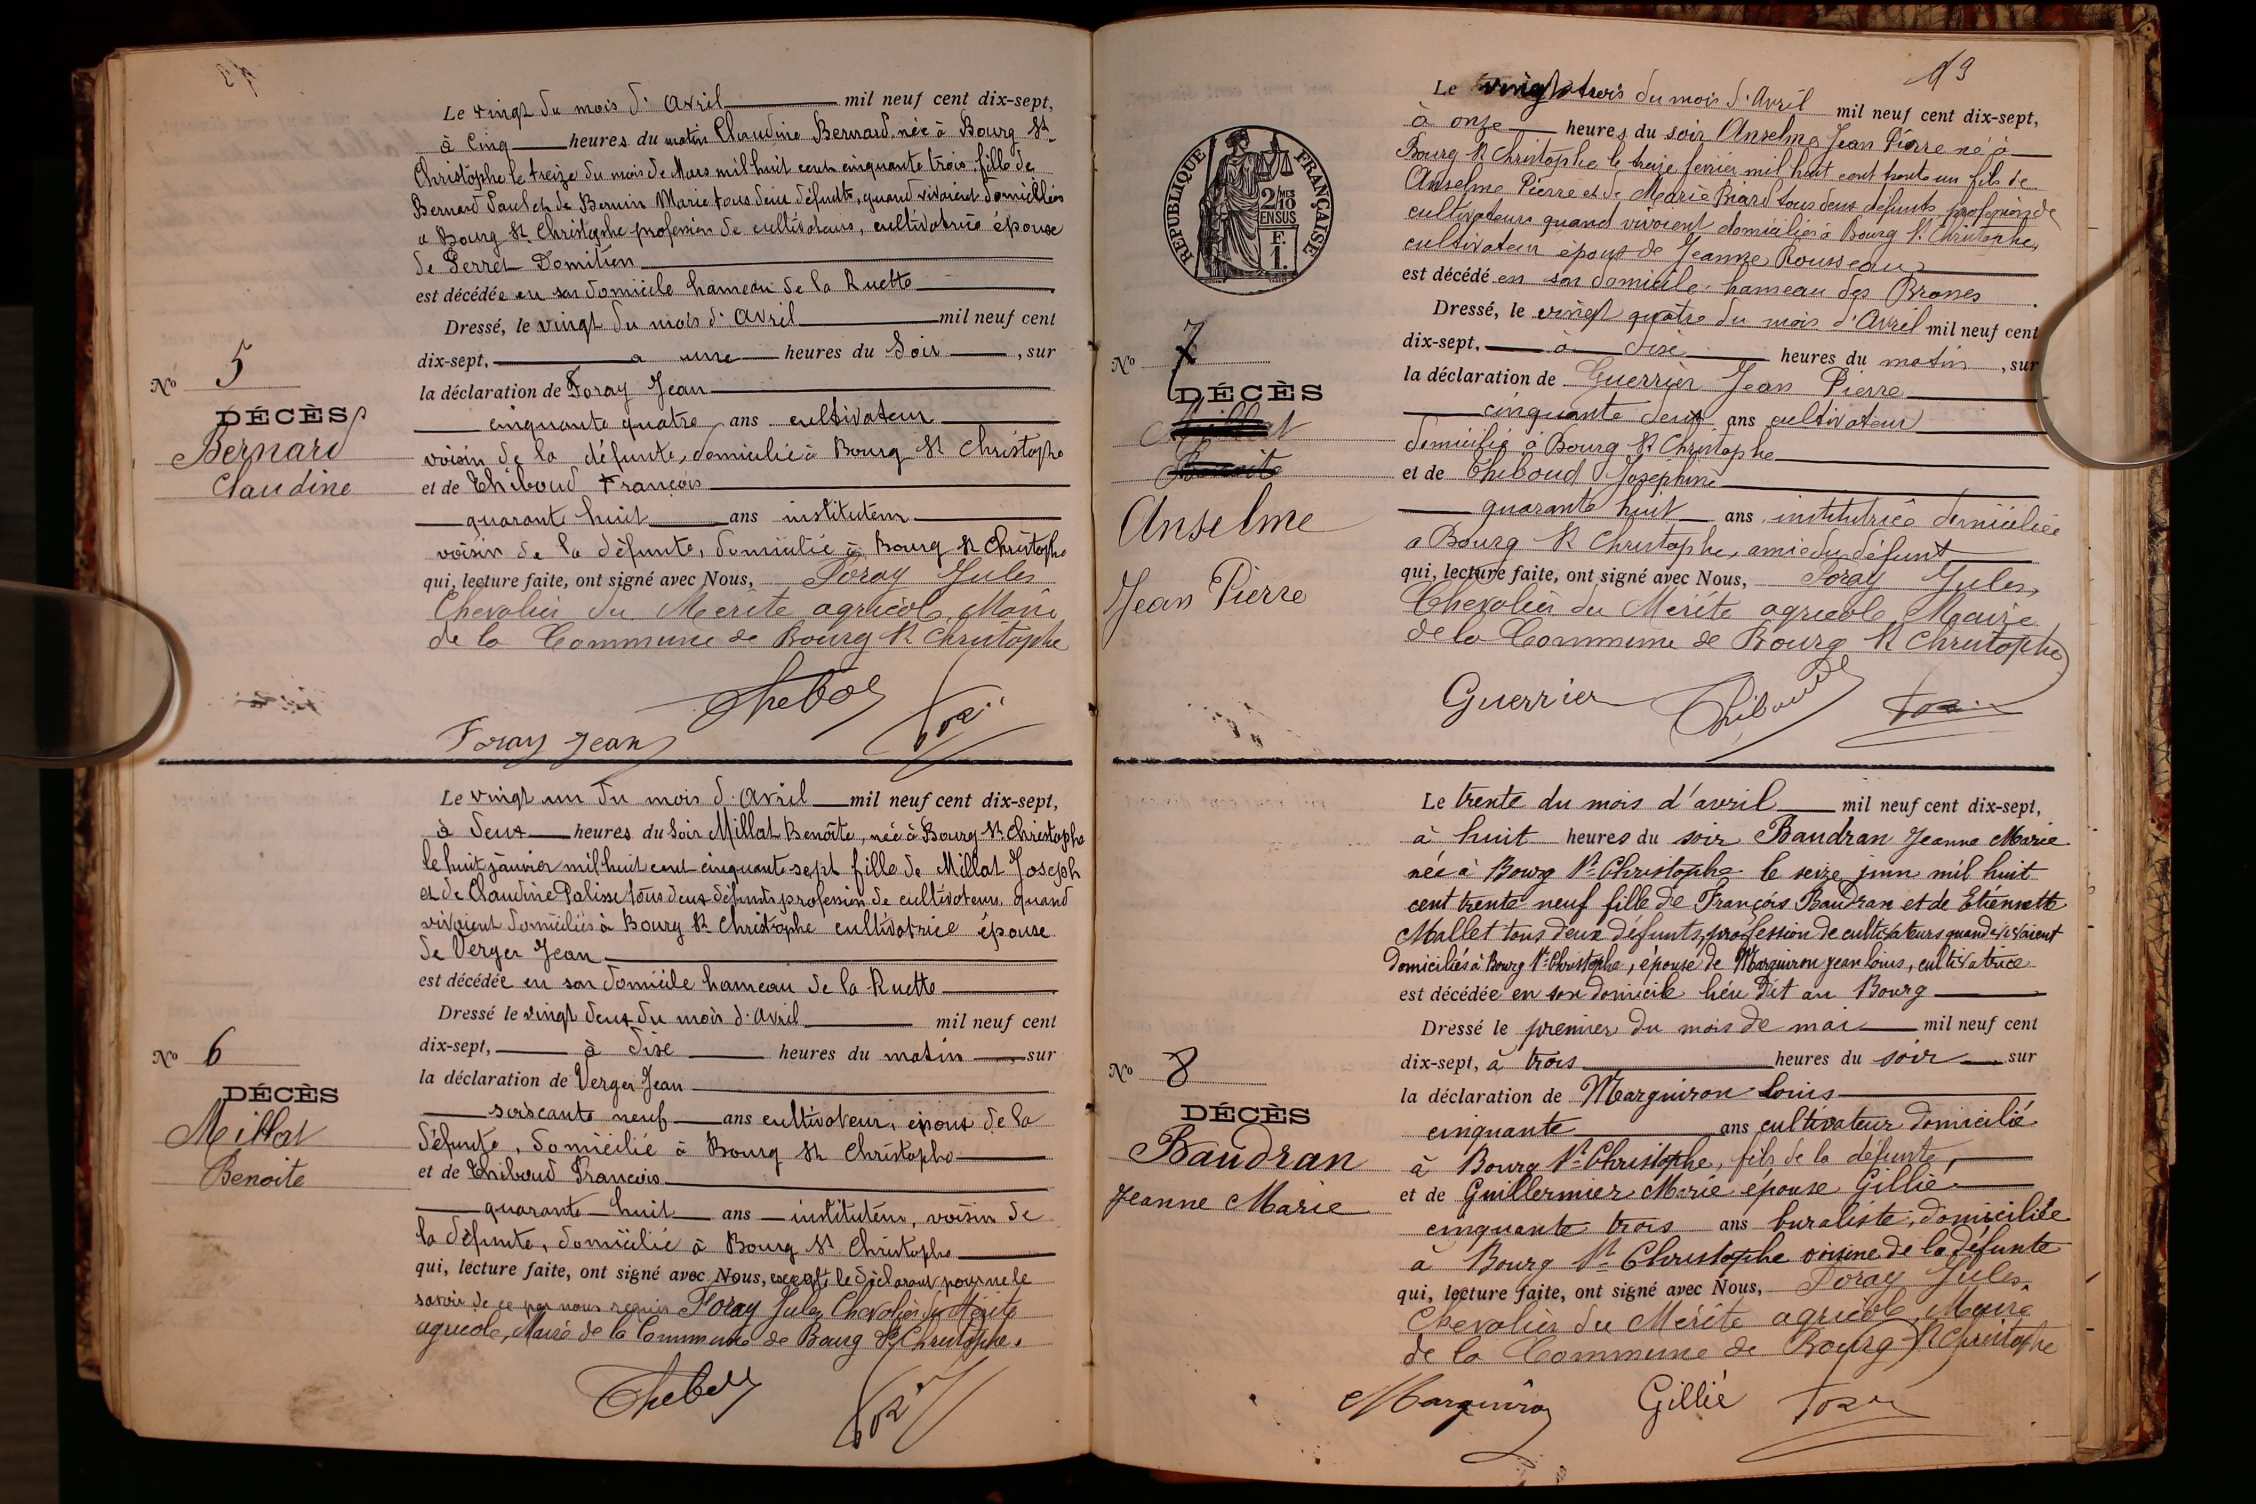 Le vingt du mois d'Avril mil neuf cent dix-sept,
à Cinq heures du matin Claudine Bernard née à Bourg St
Christophe le treize du mois de Mars mil huit cent cinquante trois fille de
Bernard Paul et de Bernin Marie tous deux défunts, quand vivaient domiciliés
a Bourg St Christophe profession de cultivateurs, cultivatrice épouse
de Perret Domitien
est décédée en son domicile hameau de la Ruette
Dressé, le vingt du mois d'Avril mil neuf cent
dix-sept, a une heures du Soir, sur
la déclaration de Foray Jean
cinquante quatre ans cultivateur
voisin de la défunte, domicilié à Bourg St Christophe
et de Thiboud François
quarante huit ans instituteur
voisin de la défunte, domicilié à Bourg St Christophe
qui, lecture faite, ont signé avec Nous, Foray Jules
Chevalier du Mérite agricole Maire
de la Commune de Bourg St Christophe
Foray Jean
No 5
DÉCÈS
Bernard
Claudine
Le vingt un du mois d'Avril mil neuf cent dix-sept,
à deux heures du Soir Millat Benoîte, née à Bourg St Christophe
le huit janvier mil huit cent cinquante sept fille de Millat Joseph
et de Claudine Palisse tous deux défunts profession de cultivateurs quand
vivaient domiciliés à Bourg St Christophe cultivatrice épouse
de Verger Jean
est décédée en son domicile hameau de la Ruette
Dressé le vingt deux du mois d'Avril mil neuf cent
dix-sept, à dixe heures du matin sur
la déclaration de Verger Jean
soixante neuf ans cultivateur, époux de la
défunte, domicilié à Bourg St Christophe
et de Thiboud François
quarante huit ans instituteur, voisin de
la défunte, domicilié à Bourg St Christophe
qui, lecture faite, ont signé avec Nous, excepté le déclarant pour ne le
savoir de ce par nous requis Foray Jules Chevalier du Mérite
agricole, Maire de la Commune de Bourg St Christophe.
No 6
DÉCÈS
Millat
Benoite
13
RÉPUBLIQUE FRANÇAISE
2/10
MES
EN SUS
F.
1.
Le vingt trois du mois d'Avril mil neuf cent dix-sept,
à onze heures du soir Anselme Jean Pierre né à
Bourg St Christophe le treize février mil huit cent trente un fils de
Anselme Pierre et de Marie Biard tous deux défunts profession de
cultivateurs quand vivaient domiciliés à Bourg St Christophe,
cultivateur époux de Jeanne Rousseau
est décédé en son domicile hameau des Brones
Dressé, le vingt quatre du mois d'Avril mil neuf cent
dix-sept, à dixe heures du matin, sur
la déclaration de Guerrier Jean Pierre
cinquante deux ans cultivateur
domicilié à Bourg St Christophe
et de Thiboud Joséphine
quarante huit ans institutrice domiciliée
a Bourg St Christophe, amie du défunt
qui, lecture faite, ont signé avec Nous, Foray Jules
Chevalier du Mérite agricole Maire
de la Commune de Bourg St Christophe
Guerrier Thiboud
No 7
DÉCÈS
Millat
Benoite
Anselme
Jean Pierre
Le trente du mois d'avril mil neuf cent dix-sept,
à huit heures du soir Baudran Jeanne Marie
née à Bourg St Christophe le seize juin mil huit
cent trente neuf fille de François Baudran et de Etiennette
Mallet tous deux défunts, profession de cultivateurs quand vivaient
domiciliés à Bourg St Christophe, épouse de Marguiron Jean Louis, cultivatrice
est décédée en son domicile lieu dit au Bourg
Dressé le premier du mois de mai mil neuf cent
dix-sept, à trois heures du soir sur
la déclaration de Marguiron Louis
cinquante ans cultivateur domicilié
à Bourg St Christophe, fils de la défunte,
et de Guillermier Marie épouse Gillié
cinquante trois ans buraliste, domiciliée
à Bourg St Christophe voisine de la défunte
qui, lecture faite, ont signé avec Nous, Foray Jules
Chevalier du Mérite agricole Maire
de la Commune de Bourg St Christophe
Marguiron Gillié
No 8
DÉCÈS
Baudran
Jeanne Marie